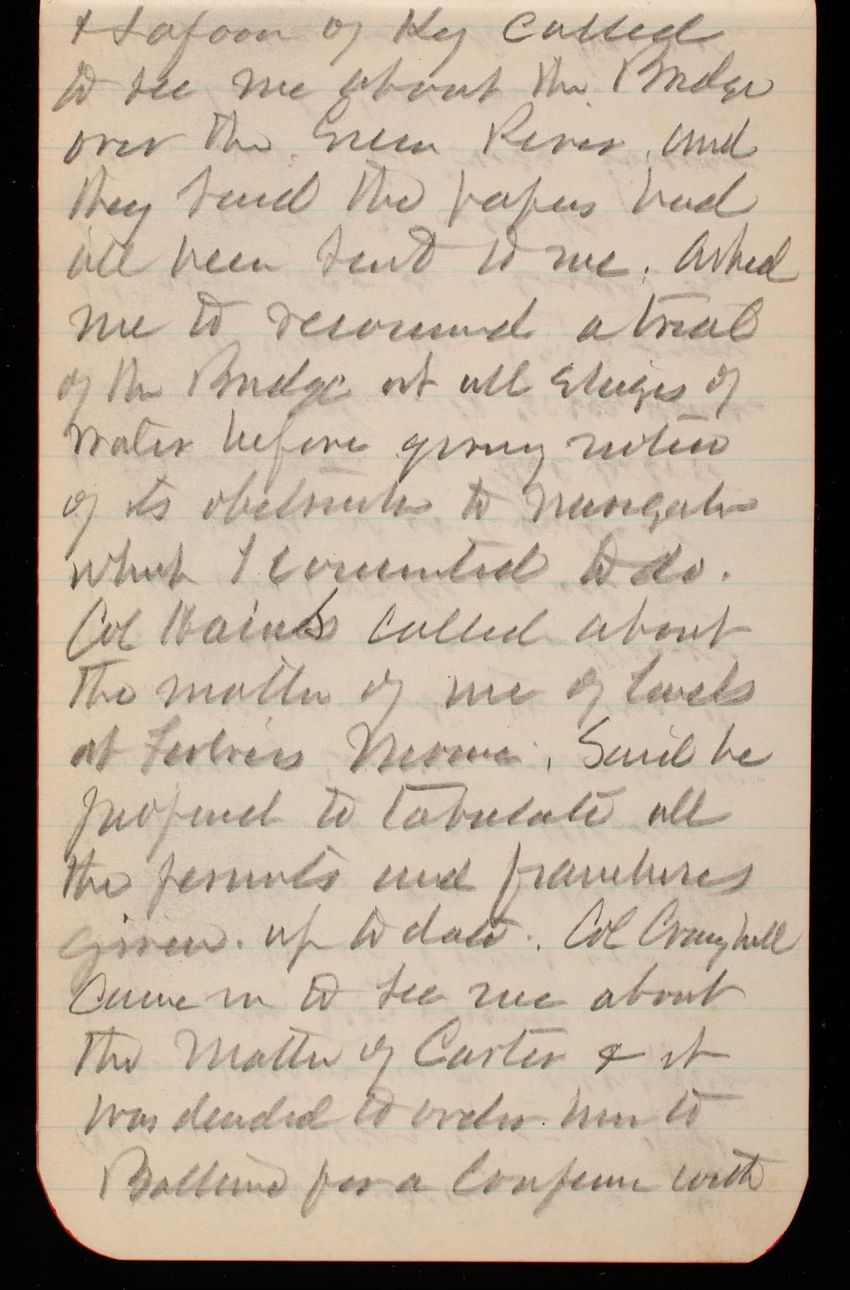 & Lafoon of Ky called
to see me about the Bridge
over the Green River. and
they said the papers had
all been sent to me. Asked
me to recommend a trial
of the Bridge at all stages of
water before giving notice
of its obstruction to navigation
which I consented to do.
Col Hains called about
the matter of me of levels
at Fortress Monroe. Said he
proposed to tabulate all
the permits and franchises
given. up to date. Col Craighill
came in to see me about
the matter of Carter & it
was decided to order him to
Baltimore for a Conference with